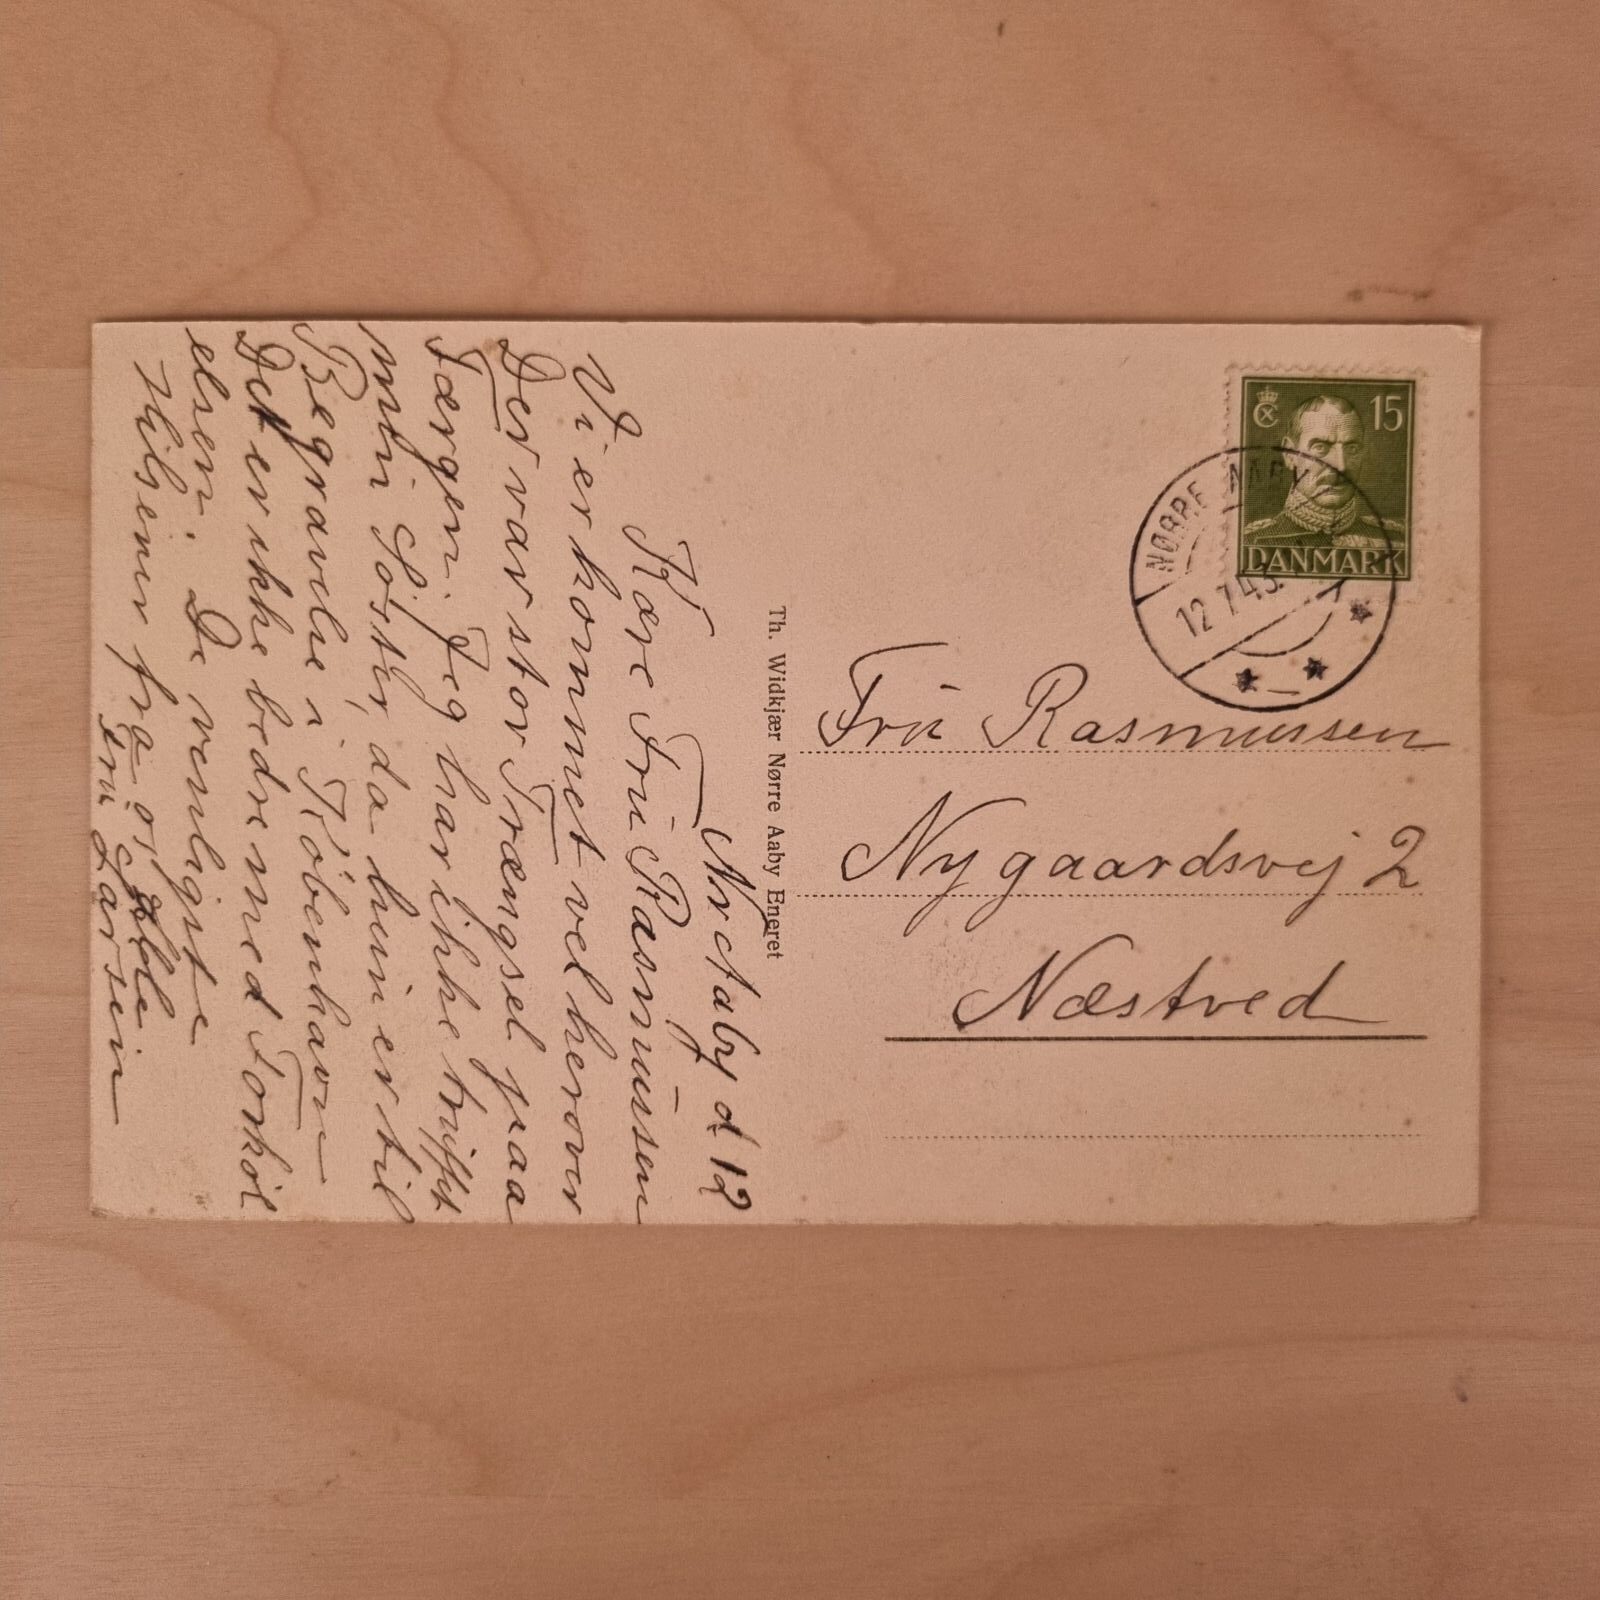 Nr Aaby d 12
Kære Fru Rasmussen
Vi er kommet vel herover
Der var stor Trængsel paa
Færgen. Jeg har ikke truffet
min Søster, da hun er til
Begravelse i København
Det er ikke bedre med Forköl
elsen. De venligste
Hilsener fra os alle
Fru Larsen
Th. Widkjær Nørre Aaby Eneret
15
DANMARK
NØRRE AABY
12 7.43.
Fru Rasmussen
Nygaardsvej 2
Næstved